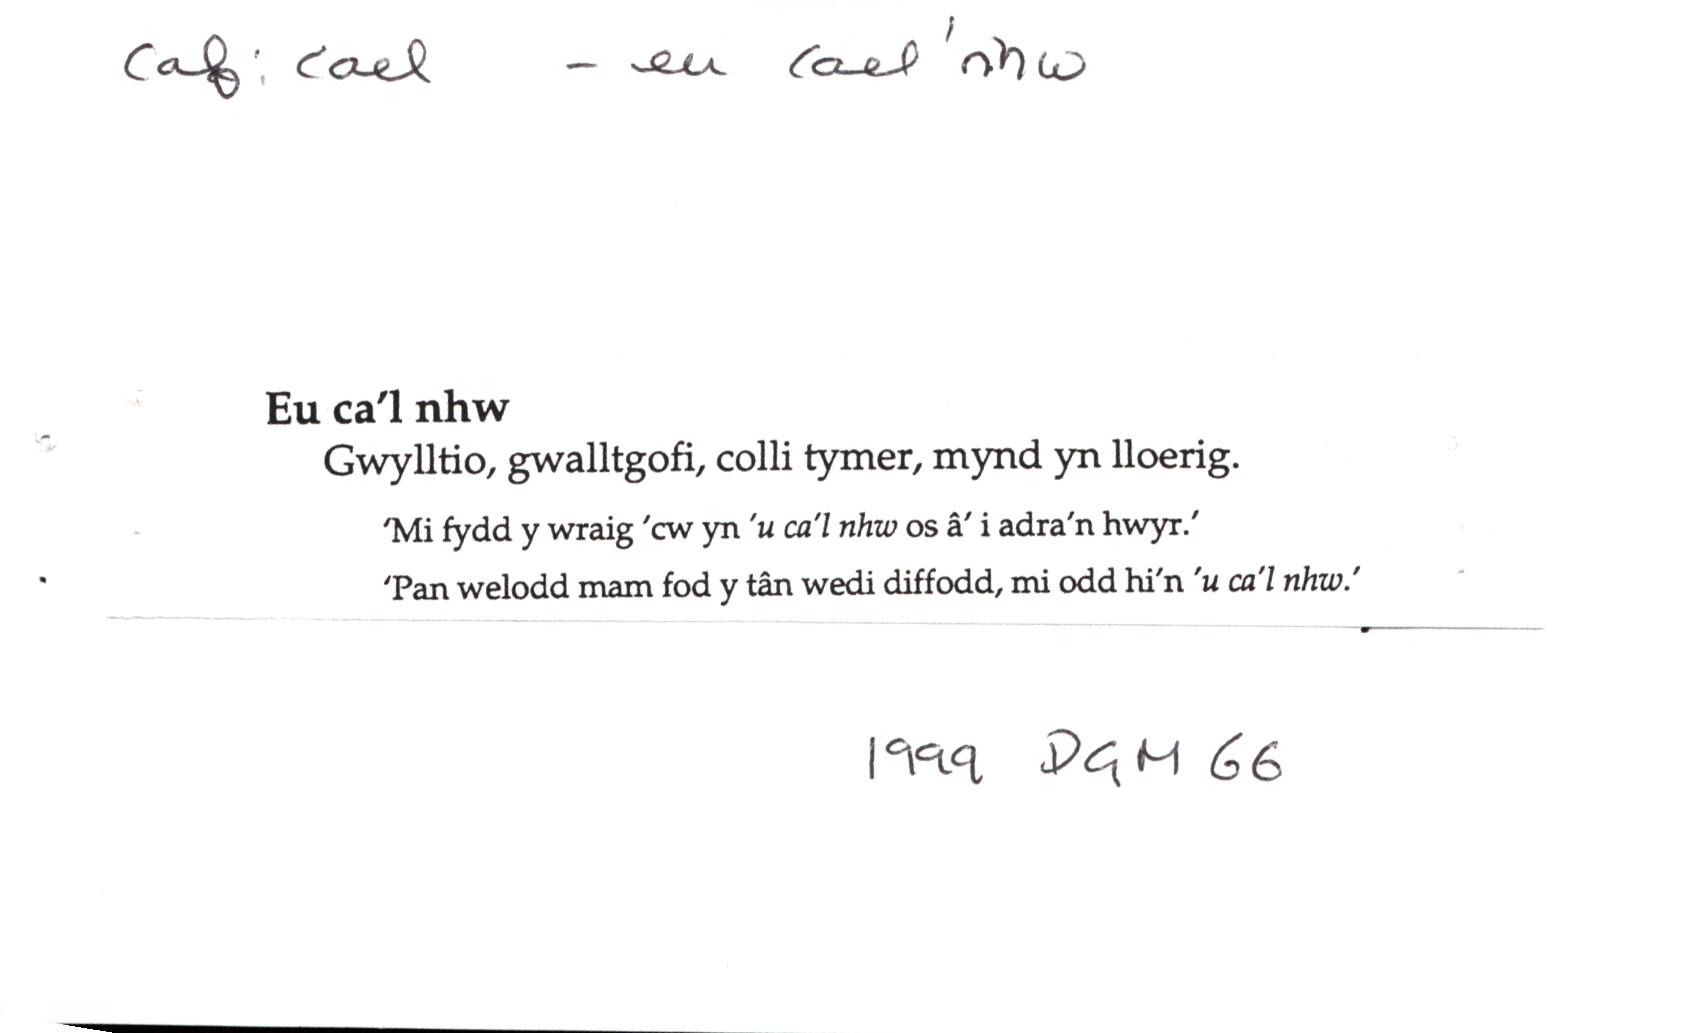 caf: cael – eu cael 'nhw
Eu ca'l nhw
Gwylltio, gwalltgofi, colli tymer, mynd yn lloerig.
'Mi fydd y wraig 'cw yn 'u ca'l nhw os â' i adra'n hwyr.'
'Pan welodd mam fod y tân wedi diffodd, mi odd hi'n 'u ca'l nhw.'
1999 DGM 66